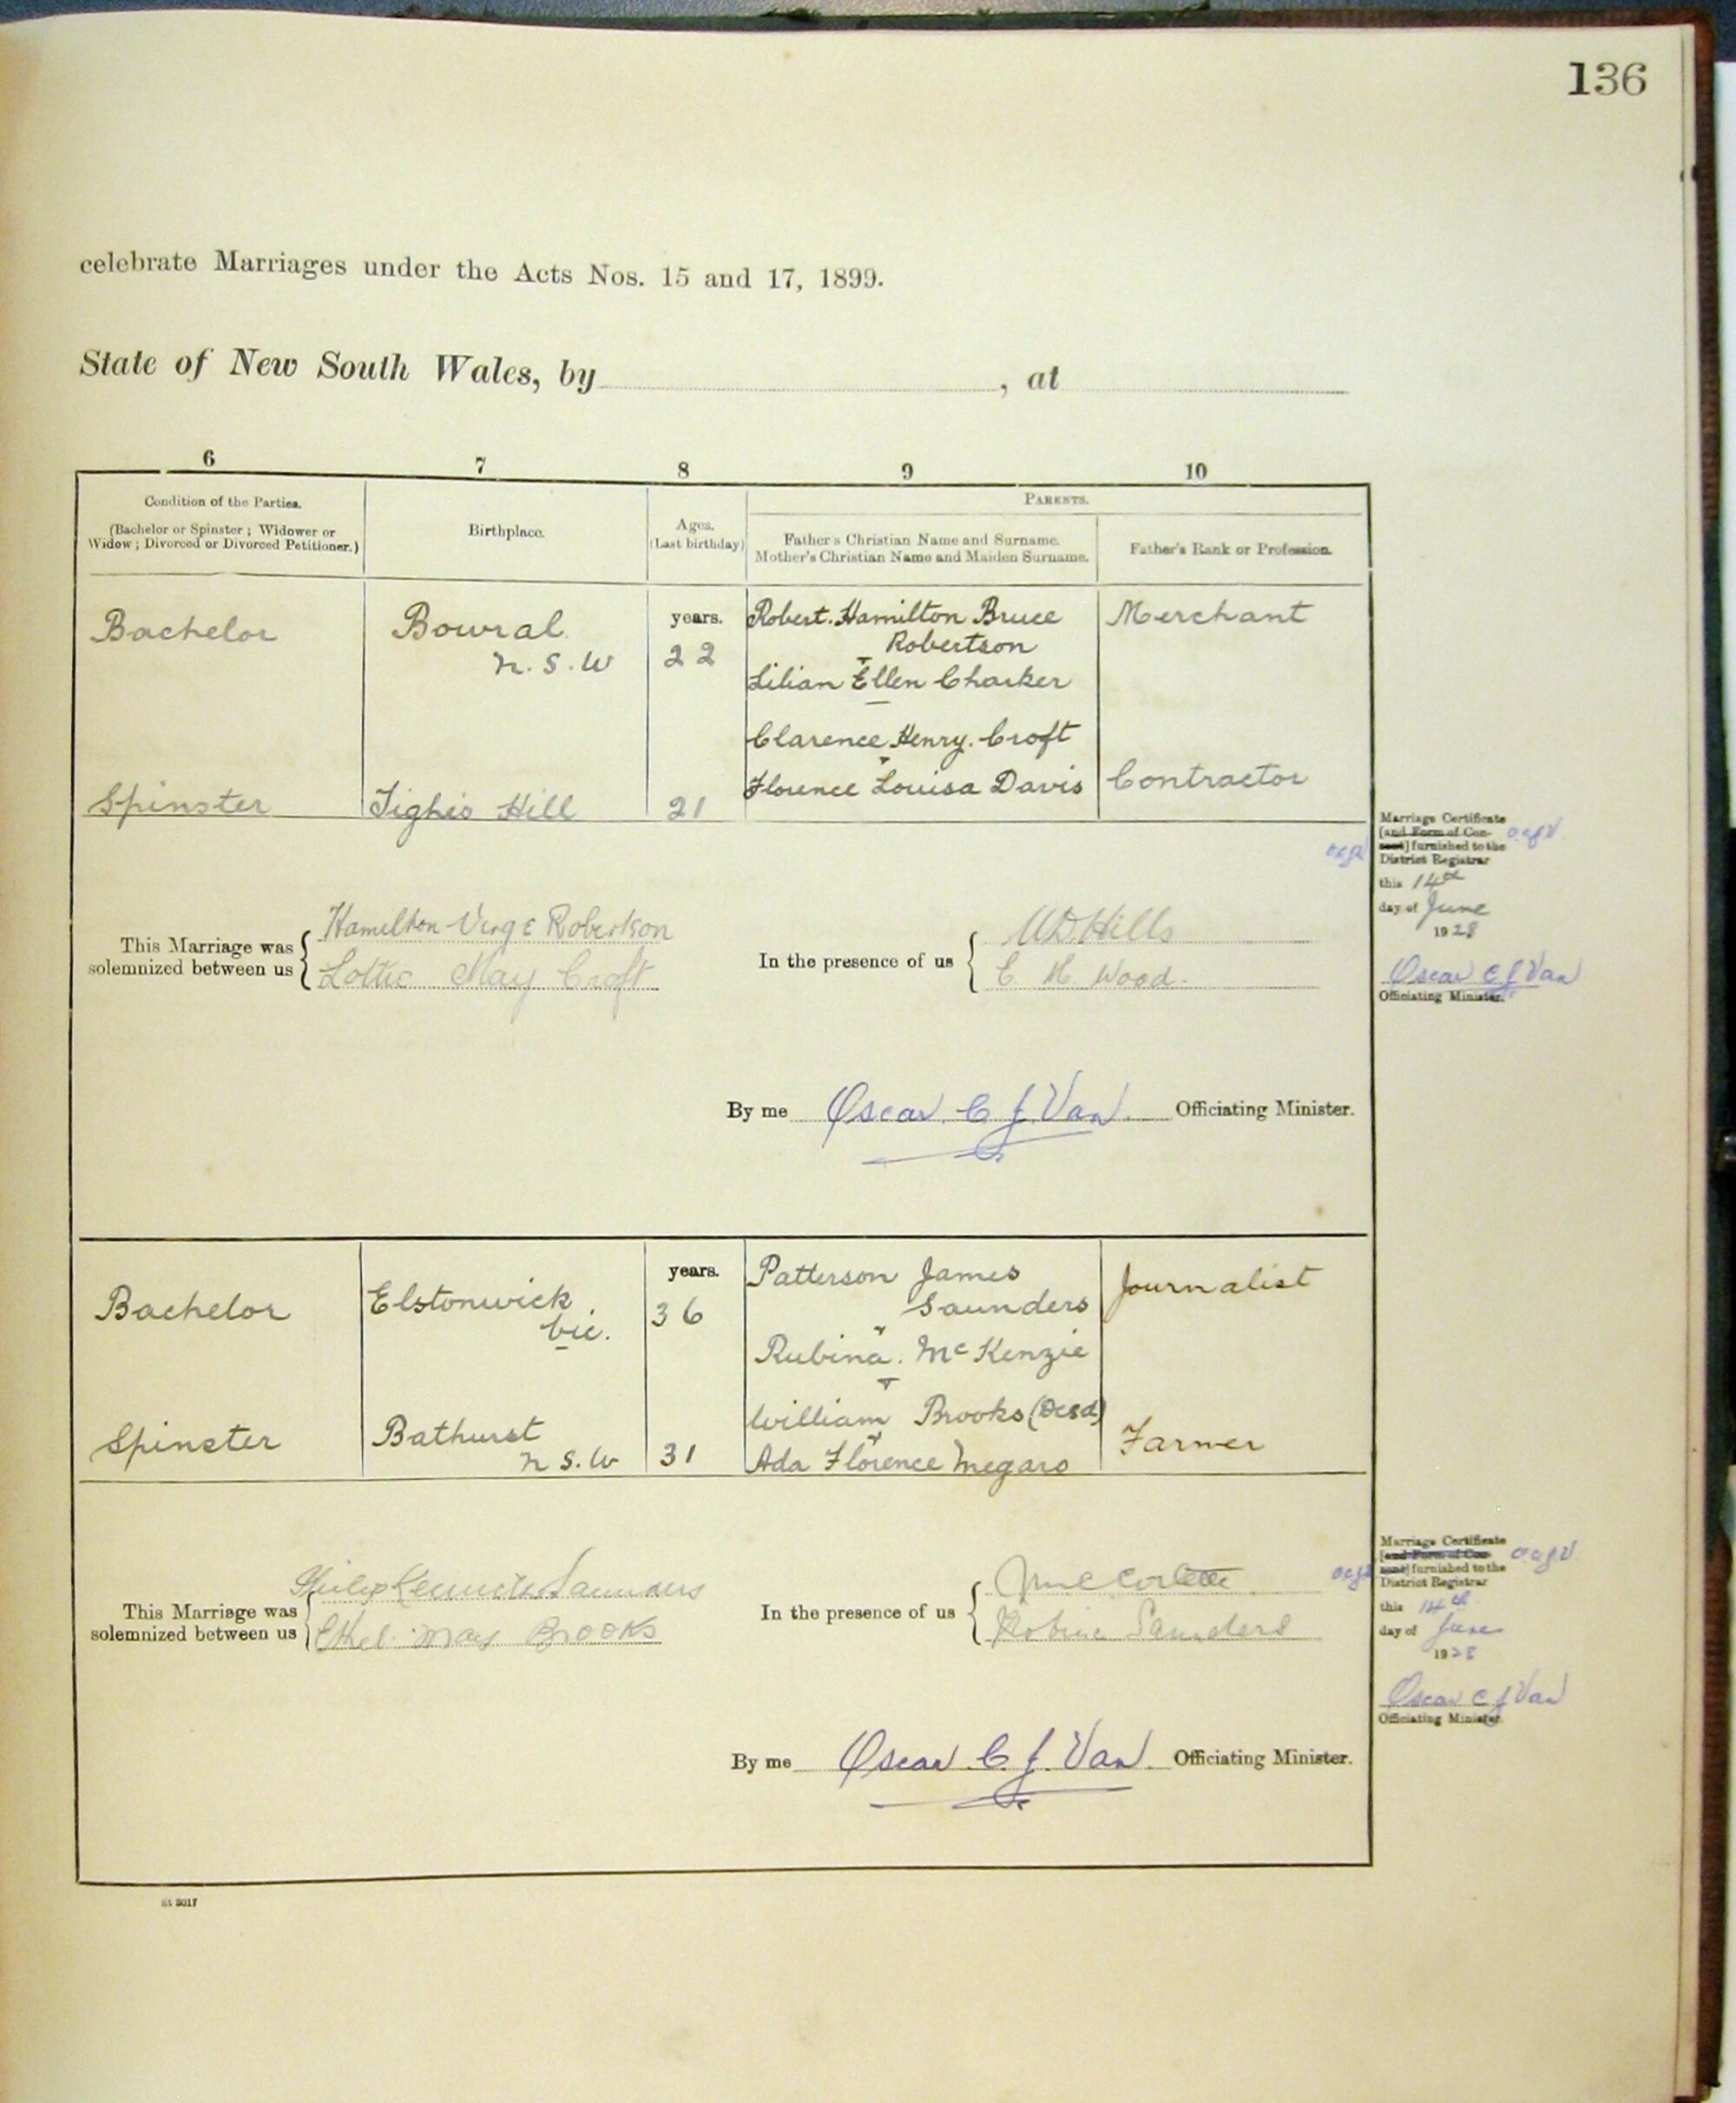 136
celebrate Marriages under the Acts Nos. 15 and 17, 1899.
State of New South Wales, by , at
6 7 8 9 10
Condition of the Parties.
(Bachelor or Spinster ; Widower or
Widow ; Divorced or Divorced Petitioner.)
Birthplace.
Ages.
(Last birthday)
PARENTS.
Father's Christian Name and Surname.
Mother's Christian Name and Maiden Surname.
Father's Rank or Profession.
Bachelor
Bowral
N.S.W
years.
22
Robert. Hamilton Bruce
Robertson
Lilian Ellen Charker
Merchant
Clarence Henry. Croft
Florence Louisa Davis
Contractor
Spinster
Tighes Hill
21
Marriage Certificate
[and Form of Con-
sent] furnished to the
District Registrar
this 14th
day of June
1928
Oscar C J Van
Officiating Minister.
This Marriage was
solemnized between us
Hamilton Verge Robertson
Lottie May Croft
In the presence of us
W D Hills
C H Wood.
By me Oscar. C J. Van. Officiating Minister.
Bachelor
Elstonwick
Vic.
years.
36
Patterson James
Saunders
Rubina. McKenzie
Journalist
William Brooks (Decd)
Ada Florence Megaro
Farmer
Spinster
Bathurst
N S.W
31
Marriage Certificate
[and Form of Con-
sent] furnished to the
District Registrar
this 14th
day of June
1928
Oscar C J Van
Officiating Minister.
This Marriage was
solemnized between us
Philip Kenneth Saunders
Ethel May Brooks
In the presence of us
Saunders
By me Oscar. C. J. Van. Officiating Minister.